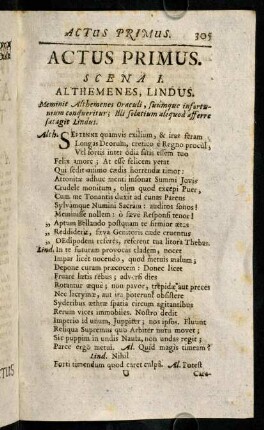 ACTUS PRIMUS. 305
ACTUS PRIMUS.
SCENA I.
ALTHEMENES, LINDUS.
Meminit Althemenes Oraculi, suúmque infortu-
nium conqueritur; Illi solatium aliquod afferre
satagit Lindus.
Alth. SEptenne quamvis exilium, & iræ
Longas Deorum, cretico è Regno procul,
Vel sortis inter odia satis essem tuo
Felix amore; At esse felicem vetat
Qui sedet animo horrendus timor:
Attonitæ adhuc menti insonat Summi Jovis
Crudele monitum, olim quod excepi Puer,
Cum me Tonantis duxit ad cunti Parens
Sylvamque Numini Sacram: audires sonos!
Meminisse nollem: ò sæve Responsi tenor!
„ Aptum Bellando postquam te firmior ætas
„ Reddiderit, sæva Genitoris cæde cruentus
„ OEdipodem referes, referet tua litora Thebas.
Lind. In te futuram provocas cladem, nocet
Impar licet nocendo, quod metuis malum;
Depone curam præcocem: Donec licet
Froare lætis rebus; adversæ dies
Rotantur æque; non pavor, trepidæ aut preces
Nec lacrymæ, aut ira poterunt obsistere
Syderibus æthræ spatia circum agitantibus
Rerum vices immobiles. Nostro dedit
Imperio id unum, Juppiter; nos ipsos. Fluunt
Reliqua Supremus quo Arbiter nutu movet;
Sic puppim in undis Nauta, non undas regit;
Parce ergo metui. Al. Quid magis timeam?
Lind. Nihil
Forti timendum quod caret culpâ. Al. Potest
U Cura-